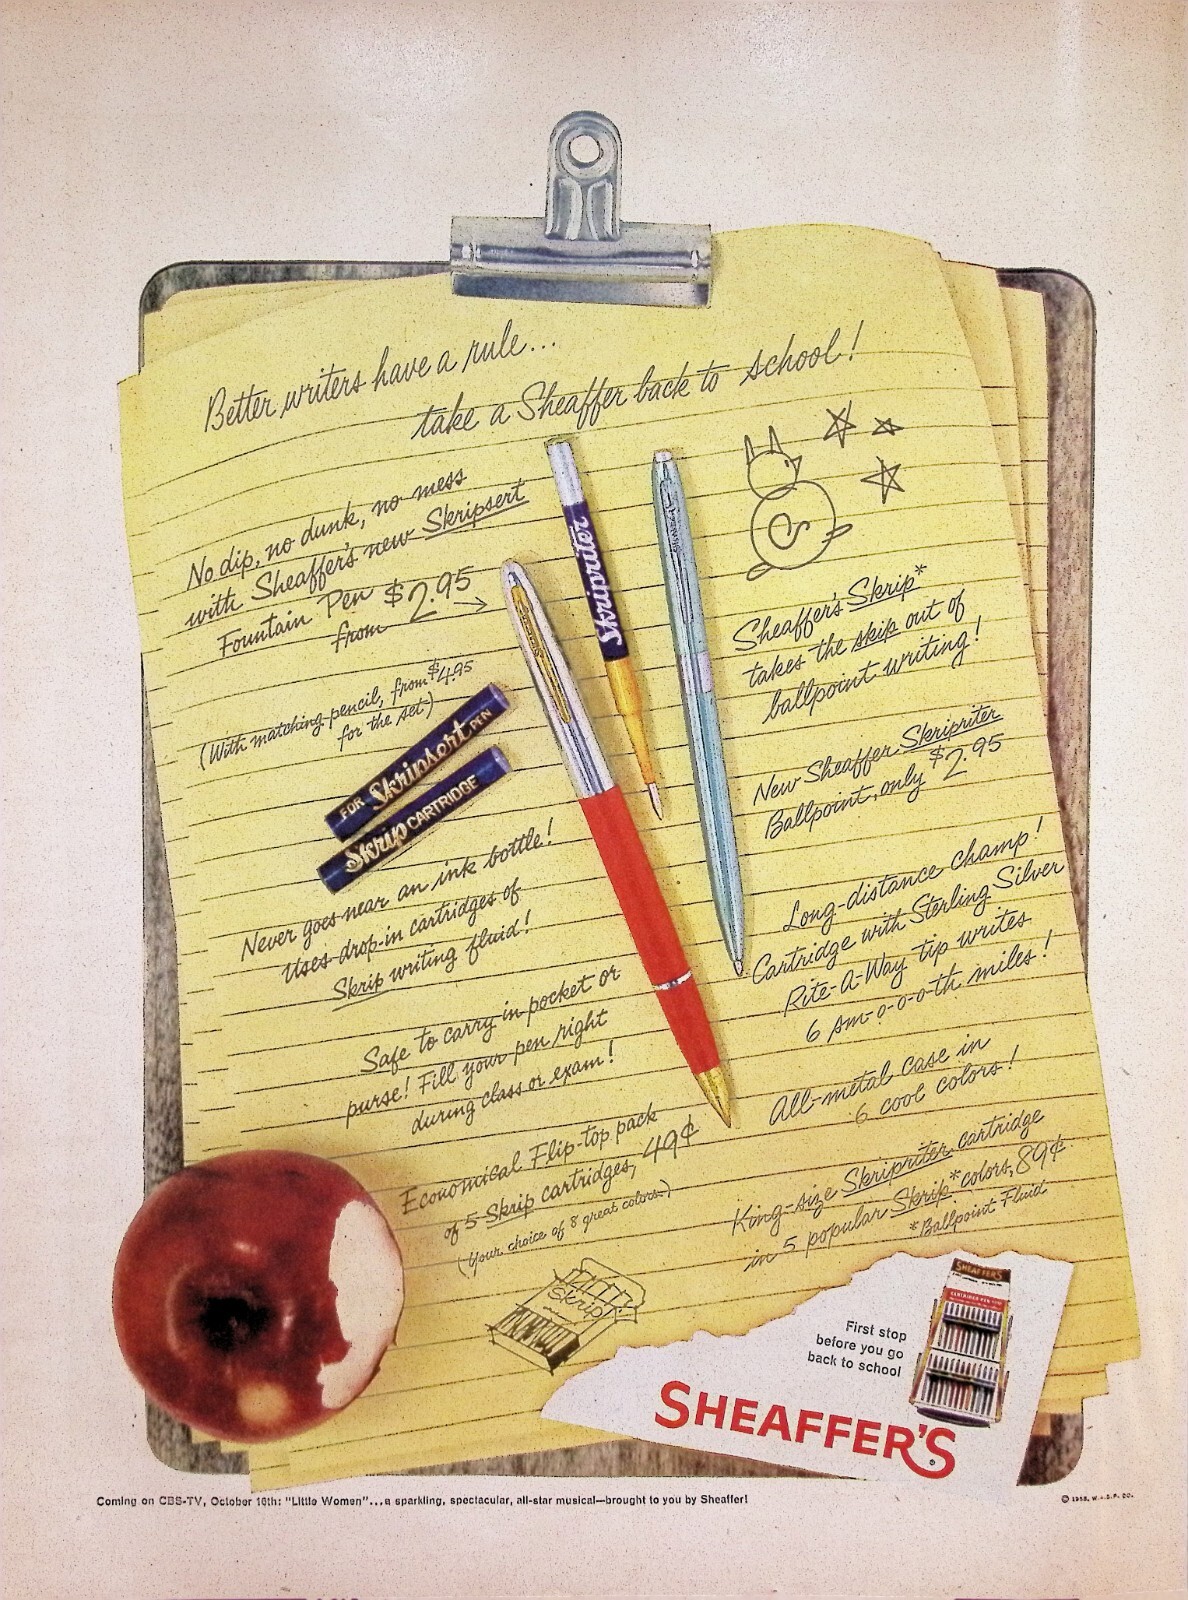 Better writers have a rule...
take a Sheaffer back to school!
No dip, no dunk, no mess
with Sheaffer's new Skripsert
Fountain Pen $2.95
from
(With matching pencil, from $4.95
for the set.)
FOR Skripsert PEN
Skrip CARTRIDGE
Never goes near an ink bottle!
Uses drop-in cartridges of
Skrip writing fluid!
Safe to carry in pocket or
purse! Fill your pen right
during class or exam!
Economical Flip-top pack
of 5 Skrip cartridges, 49¢
(Your choice of 8 great colors.)
Skrip
Skripriter
SHEAFFER'S
Sheaffer's Skrip*
takes the skip out of
ballpoint writing!
New Sheaffer Skripriter
Ballpoint, only $2.95
Long-distance champ!
Cartridge with Sterling Silver
Rite-A-Way tip writes
6 sm-o-o-o-th miles!
All-metal case in
6 cool colors!
King-size Skripriter cartridge
in 5 popular Skrip* colors, 89¢
*Ballpoint Fluid
SHEAFFER'S
First stop
before you go
back to school
SHEAFFER'S
Coming on CBS-TV, October 16th: "Little Women"...a sparkling, spectacular, all-star musical—brought to you by Sheaffer!
© 1958, W.A.S.P. CO.